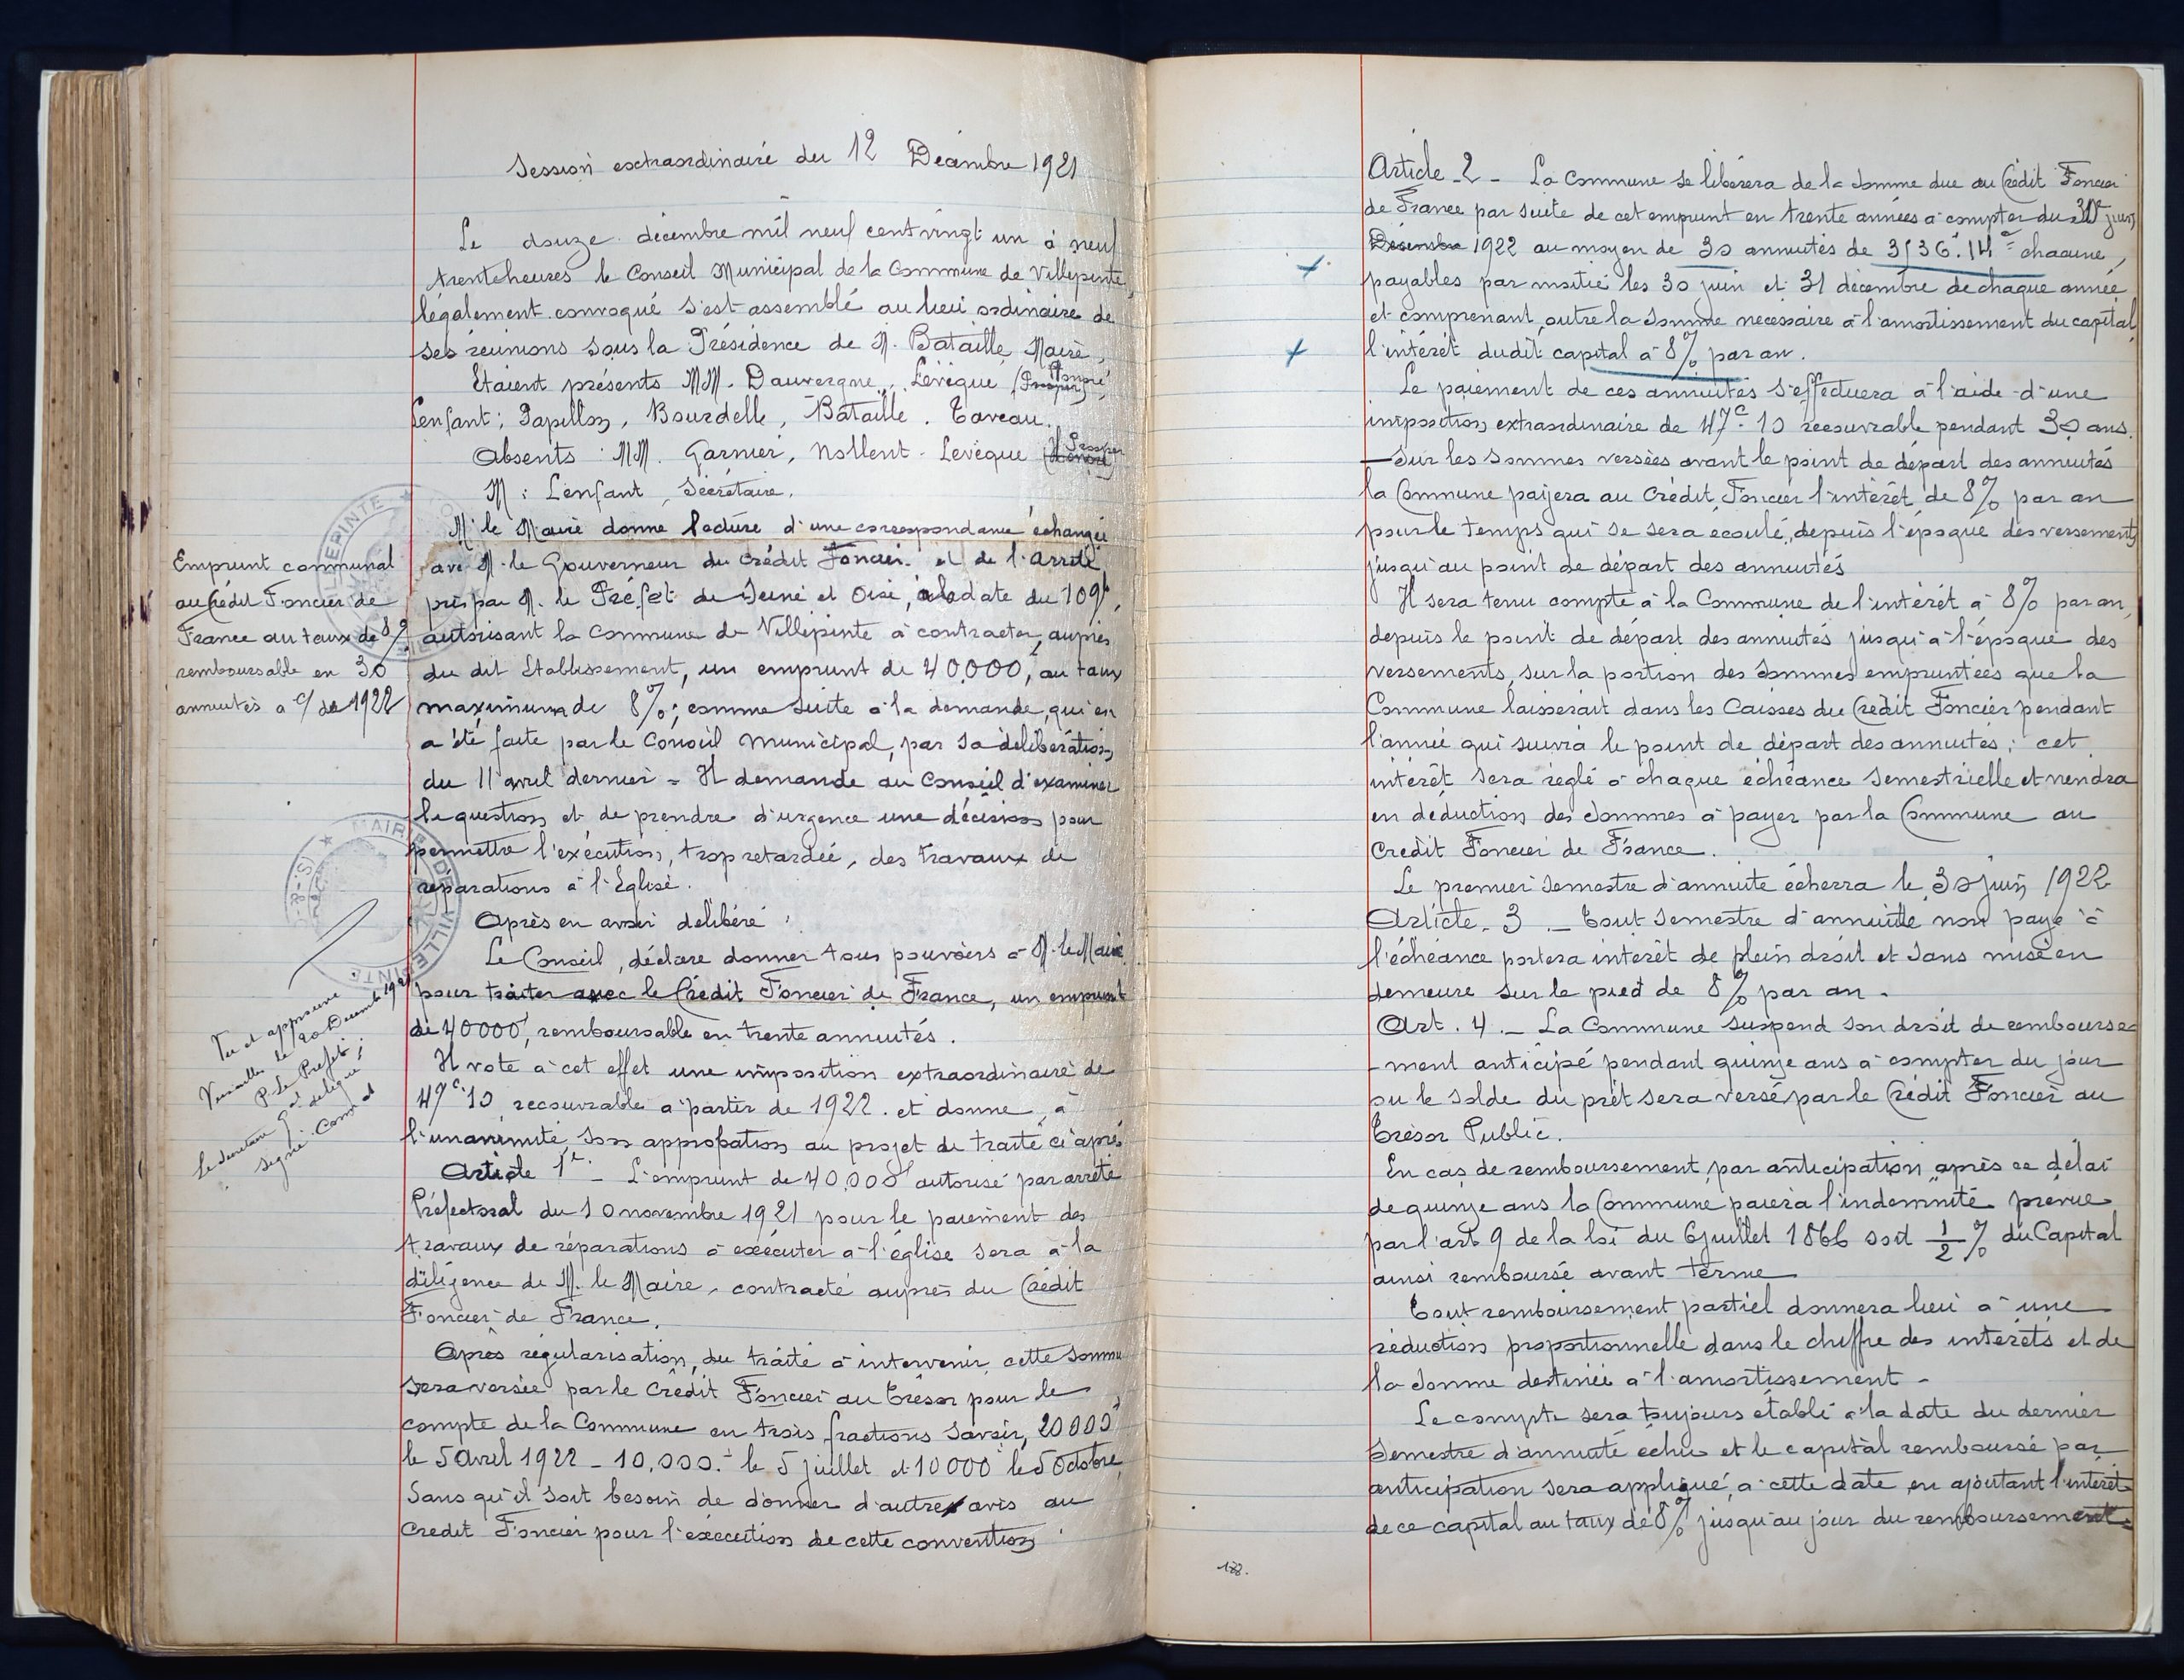 Session extraordinaire du 12 Décembre 1921
Le douze décembre mil neuf cent vingt un à neuf
trente heures le Conseil Municipal de la Commune de Villepinte,
légalement convoqué s'est assemblé au lieu ordinaire de
ses réunions sous la Présidence de M. Bataille, Maire,
Etaient présents MM. Dauvergne, Levêque (Honoré),
Lenfant; Papillon, Bourdelle, Bataille. Taveau.
Absents : MM. Garnier, Nollent. Levêque (Prosper)
M. Lenfant, Secrétaire.
M. le Maire donne lecture d'une correspondance échangée
avec M. le Gouverneur du Crédit Foncier. et de l'arrêté
pris par M. le Préfet de Seine et Oise, à la date du 10 9bre,
autorisant la Commune de Villepinte à contracter, auprès
du dit Etablissement, un emprunt de 40.000f, au taux
maximum de 8%; comme suite à la demande, qui en
a été faite par le Conseil Municipal, par sa délibération
du 11 avril dernier - Il demande au Conseil d'examiner
la question et de prendre d'urgence une décision pour
permettre l'exécution, trop retardée, des travaux de
réparations à l'Eglise.
Après en avoir délibéré,
Le Conseil, déclare donner tous pouvoirs à M. le Maire
pour traiter avec le Crédit Foncier de France, un emprunt
de 40000f, remboursable en trente annuités.
Il vote à cet effet une imposition extraordinaire de
47c.10 recouvrable à partir de 1922. et donne, à
l'unanimité, son approbation au projet de traité ci après
Article 1er - L'emprunt de 40.000f autorisé par arrêté
Préfectoral du 10 novembre 1921 pour le paiement des
travaux de réparations à exécuter à l'église sera à la
diligence de M. le Maire, contracté auprès du Crédit
Foncier de France.
Après régularisation, du traité à intervenir, cette somme
sera versée par le Crédit Foncier au Trésor pour le
compte de la Commune en trois fractions savoir, 20000f
le 5 Avril 1922 - 10.000.f le 5 juillet et 10000f le 5 Octobre
sans qu'il soit besoin de donner d'autre avis au
Crédit Foncier pour l'exécution de cette convention.
Emprunt communal
au Crédit Foncier de
France au taux de 8%
remboursable en 30
annuités à c/ de 1922
MAIRIE DE VILLEPINTE
(S.-&-O.)
Vu et approuvé
Versailles le 20 Décembre 1921
P. le Préfet;
Le Secrétaire Gal délégué;
signé:
Article 2 - La Commune se libérera de la somme due au Crédit Foncier
de France par suite de cet emprunt en trente années à compter du 30 juin
Décembre 1922 au moyen de 30 annuités de 3536f.14c chacune,
payables par moitié les 30 juin et 31 décembre de chaque année
et comprenant, outre la somme necessaire à l'amortissement du capital,
l'intérêt dudit capital à 8% par an.
Le paiement de ces annuités s'effectuera à l'aide d'une
imposition extraordinaire de 47c.10 recouvrable pendant 30 ans.
- Sur les sommes versées avant le point de départ des annuités
la Commune payera au Crédit Foncier l'intérêt de 8% par an
pour le temps qui se sera écoulé, depuis l'époque des versements
jusqu'au point de départ des annuités
Il sera tenu compte à la Commune de l'intérêt à 8% par an,
depuis le point de départ des annuités jusqu'à l'époque des
versements, sur la portion des sommes empruntées que la
Commune laisserait dans les Caisses du Crédit Foncier pendant
l'année qui suivra le point de départ des annuités; cet
intérêt sera réglé à chaque échéance semestrielle et viendra
en déduction des sommes à payer par la Commune au
Crédit Foncier de France.
Le premier semestre d'annuité écherra le 30 juin 1922
Article. 3. - Tout semestre d'annuité non payé à
l'échéance portera intérêt de plein droit et sans mise en
demeure sur le pied de 8% par an.
Art. 4. - La Commune suspend son droit de rembourse-
-ment anticipé pendant quinze ans à compter du jour
ou le solde du prêt sera versé par le Crédit Foncier au
Trésor Public.
En cas de remboursement, par anticipation, après ce délai
de quinze ans la Commune paiera l'indemnité prévue
par l'art 9 de la loi du 6 juillet 1866 soit 1/2 % du Capital
ainsi remboursé avant terme
Tout remboursement partiel donnera lieu à une
réduction proportionnelle dans le chiffre des intérêts et de
la somme destinée à l'amortissement.
Le compte sera toujours établi à la date du dernier
semestre d'annuité échu et le capital remboursé par
anticipation sera appliqué, à cette date en ajoutant l'intérêt
de ce capital au taux de 8% jusqu'au jour du remboursement.